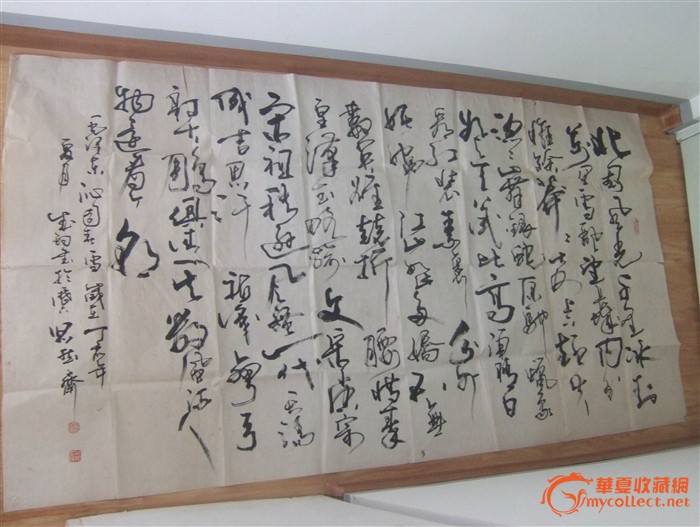 北国风光千里冰封
万里雪飘望长城内外
惟馀莽莽大河上下顿失
滔滔山舞银蛇原驰蜡象
欲与天公试比高须晴日
看红装素裹分外
妖娆江山如此多娇引无
数英雄竞折腰惜秦
皇汉武略输文采唐宗
宋祖稍逊风骚一代天骄
成吉思汗只识弯弓
射大雕俱往矣数风流人
物还看今朝
毛泽东沁园春雪岁在丁亥年
夏月
華夏收藏網
mycollect.net